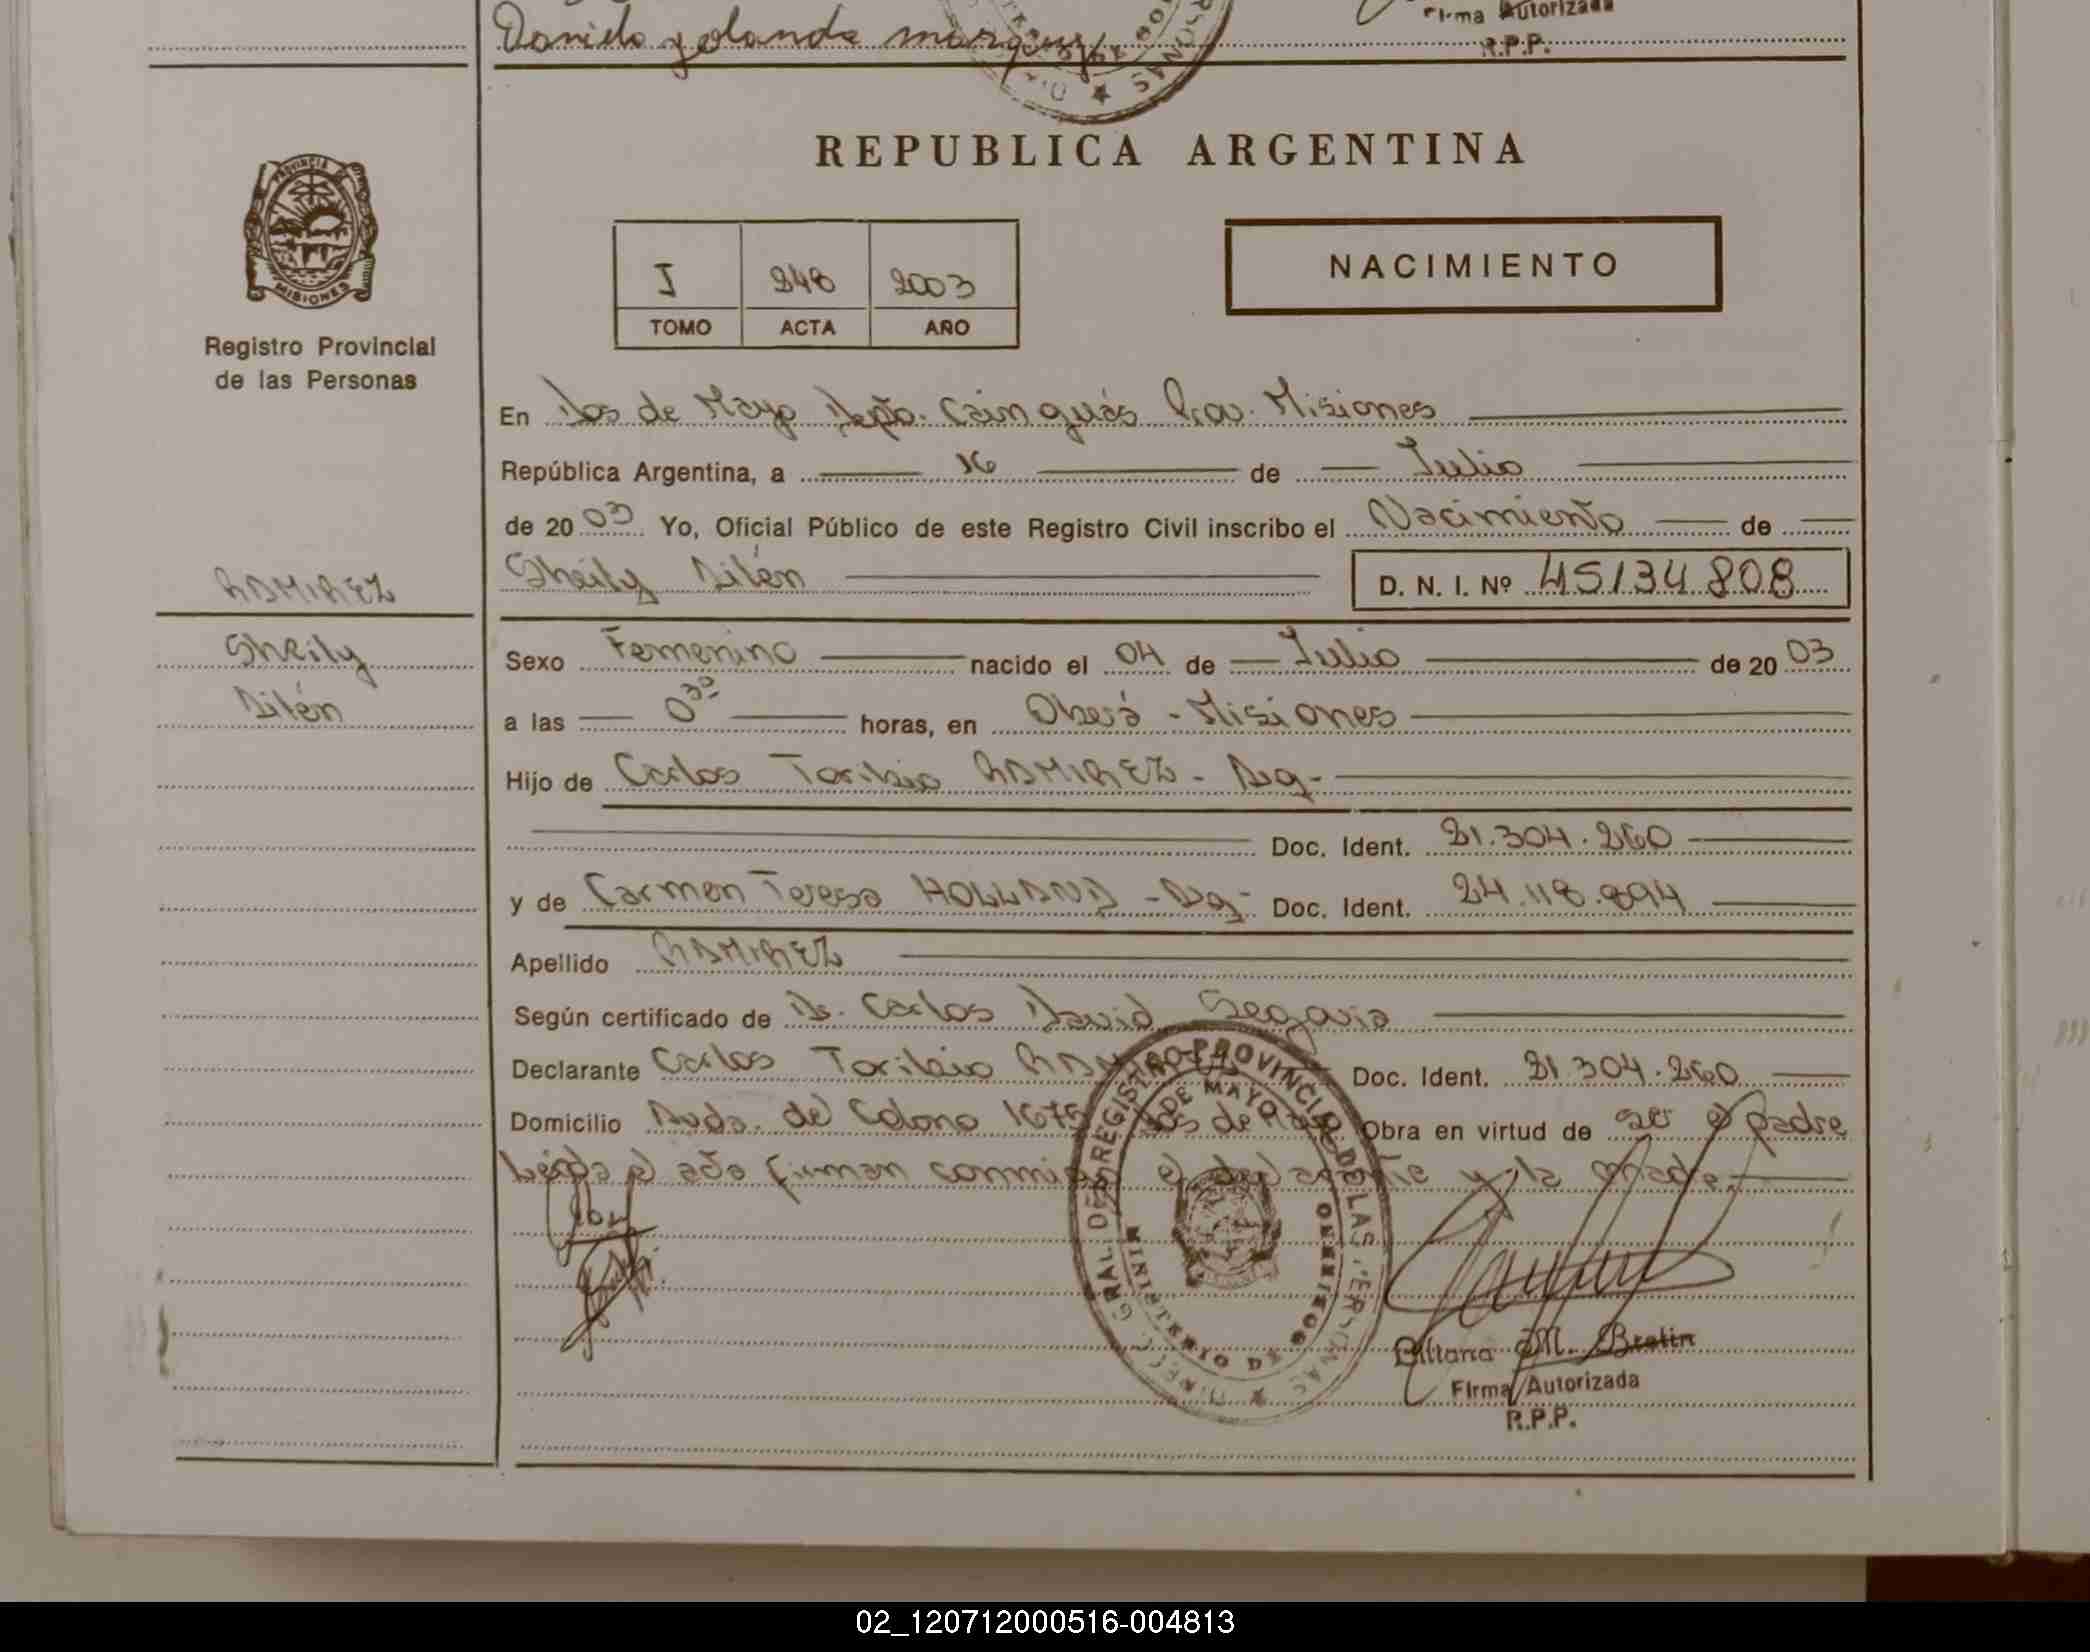 Daniela Yolanda Marquez
Firma Autorizada
R.P.P.
REPUBLICA ARGENTINA
PROVINCIA DE
MISIONES
Registro Provincial
de las Personas
NACIMIENTO
I 248 2003
TOMO ACTA AÑO
En Dos de Mayo Depto. Cainguás Prov. Misiones
República Argentina, a 16 de Julio
de 2003 Yo, Oficial Público de este Registro Civil inscribo el Nacimiento de
Sheily Ailén D. N. I. Nº 45134808
RAMIREZ
Sheily
Ailén
Sexo Femenino nacido el 04 de Julio de 2003
a las 0 30 horas, en Oberá - Misiones
Hijo de Carlos Toribio RAMIREZ - Arg -
Doc. Ident. 21.304.260
y de Carmen Teresa HOLLAND - Arg - Doc. Ident. 24.118.894
Apellido RAMIREZ
Según certificado de Dr. Carlos David Segovia
Declarante Carlos Toribio RAMIREZ Doc. Ident. 21.304.260
Domicilio Avda. del Colono 1675 Dos de Mayo Obra en virtud de ser el padre
Leída el acta firman conmigo el declarante y la madre.
DIRECC. GRAL. DEL REGISTRO PROVINCIAL DE LAS PERSONAS
DOS DE MAYO
MINISTERIO DE GOBIERNO
M. Brelin
Firma Autorizada
R.P.P.
02_120712000516-004813